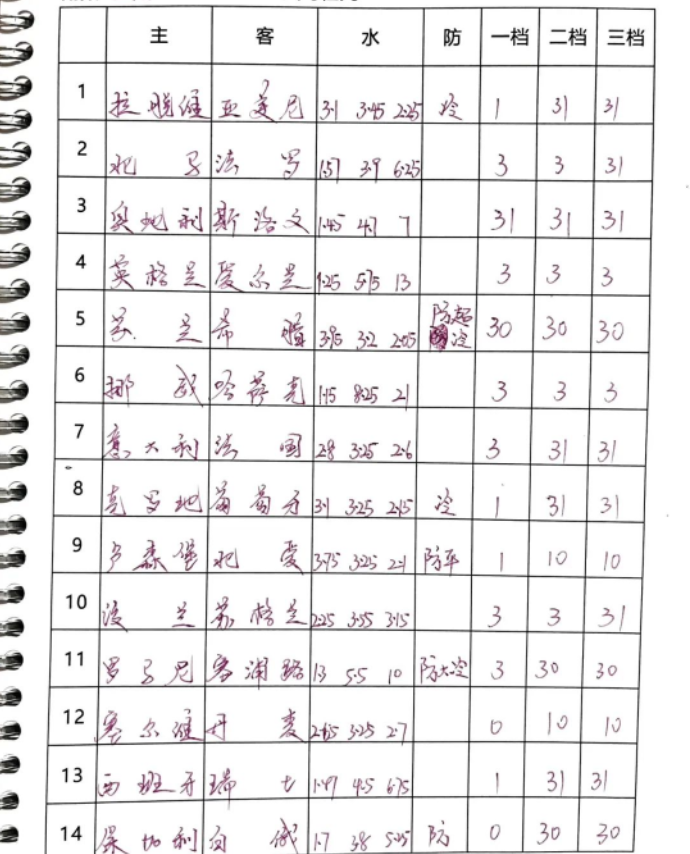 主 客 水 防 一档 二档 三档
1 拉脱维 亚美尼 3.1 3.45 2.25 冷 1 31 31
2 北马 法罗 1.57 3.9 6.25 3 3 31
3 奥地利 斯洛文 1.45 4.7 7 31 31 31
4 英格兰 爱尔兰 1.25 5.75 13 3 3 3
5 芬兰 希腊 3.95 3.2 2.05 防超冷 30 30 30
6 挪威 哈萨克 1.15 8.25 21 3 3 3
7 意大利 法国 2.8 3.25 2.6 3 31 31
8 克罗地 葡萄牙 3.1 3.25 2.15 冷 1 31 31
9 卢森堡 北爱 3.75 3.25 2.1 防平 1 10 10
10 波兰 苏格兰 2.25 3.55 3.15 3 3 31
11 罗马尼 塞浦路 1.3 5.5 10 防大冷 3 30 30
12 塞尔维 丹麦 2.65 3.25 2.7 0 10 10
13 西班牙 瑞士 1.47 4.5 6.75 1 31 31
14 保加利 白俄 1.7 3.8 5.45 防 0 30 30